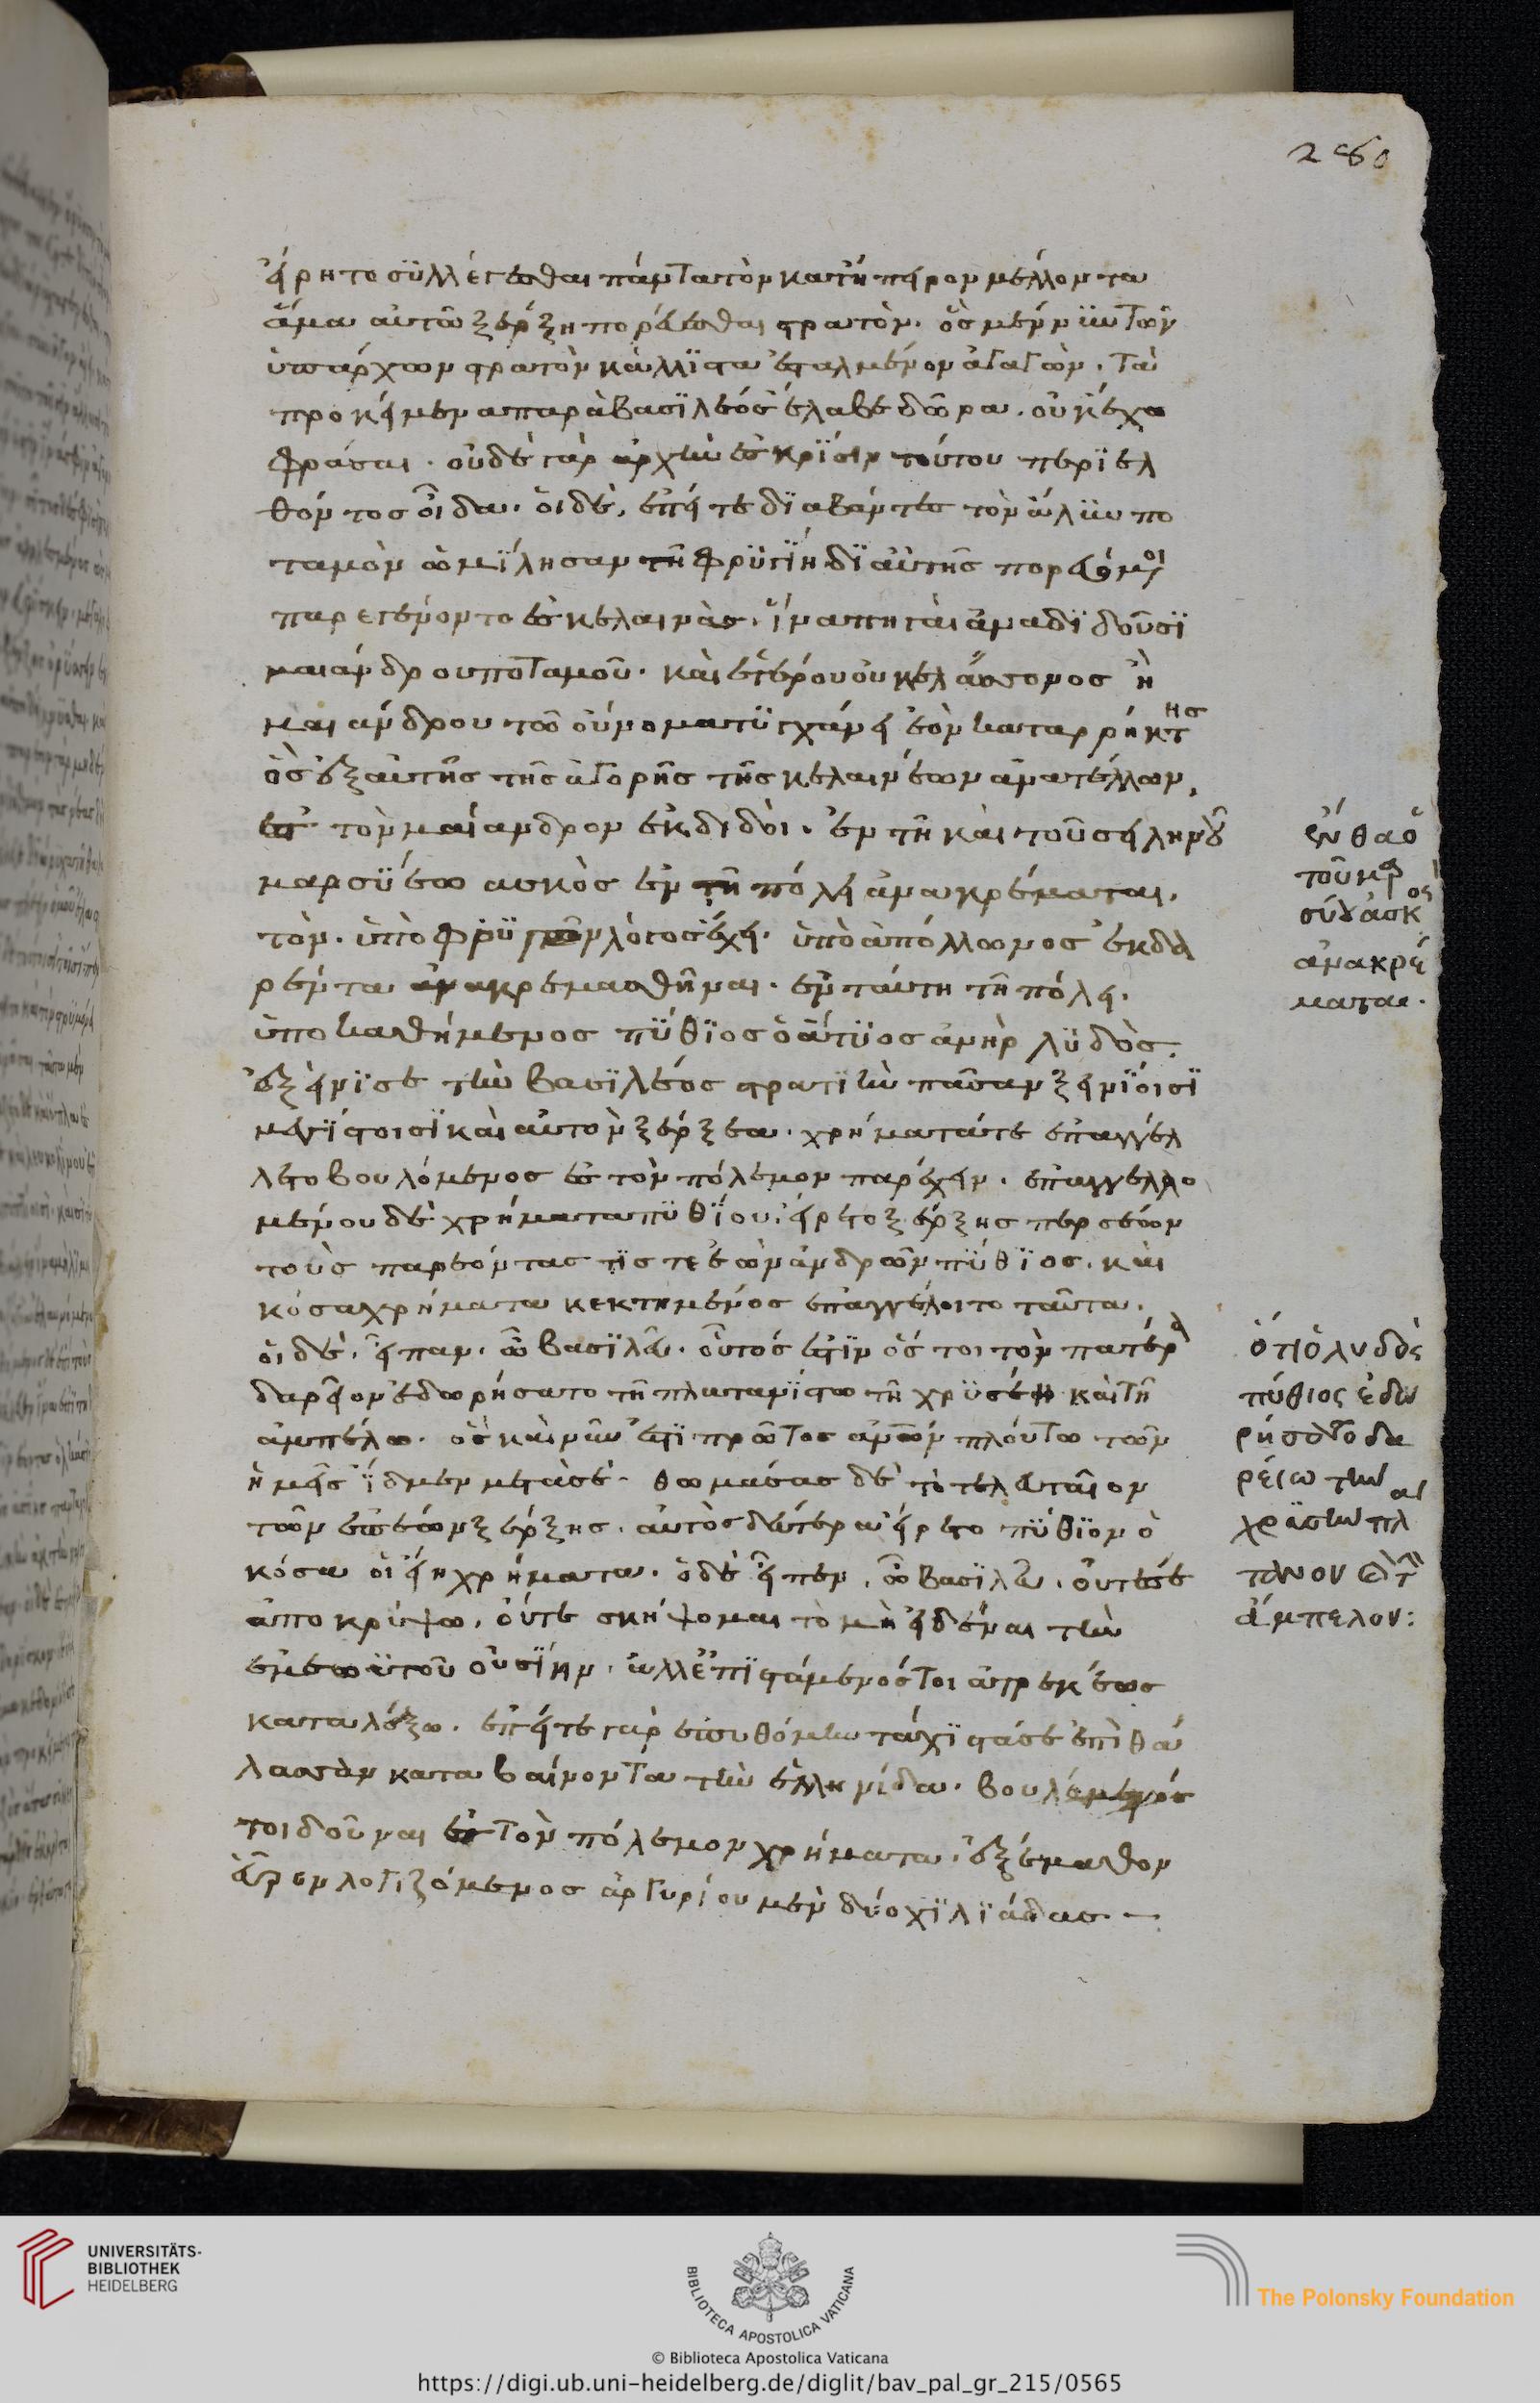 280
εἴρητο συλλέγεσθαι πάντα τὸν κατ' ἤπειρον μέλλοντα
ἅμα αὐτῶ ξέρξη πορεύεσθαι στρατόν. ὃς μέν νυν τῶν
ὑπάρχων στρατὸν κάλλιστα ἐσταλμένον ἀγαγὼν. τὰ
προκείμενα παρὰ βασιλέος ἔλαβε δῶρα. οὐκ ἔχω
φράσαι. οὐδὲ γὰρ ἀρχὴν ἐς κρίσιν τούτου περι ελ
θόντος οἶδα. οἱ δὲ, ἐπείτε διαβάντες τὸν ἅλυν πο
ταμὸν ὡμίλησαν τῆ φρυγίη δι αὐτῆς πορευόμενοι
παρεγένοντο ἐς κελαινὰς. ἵνα πηγαὶ ἀναδιδοῦσι
μαιάνδρου ποταμοῦ. καὶ ἑτέρου οὐκ ἐλάσσονος ἢ
μαιάνδρου τῶ οὔνομα τυγχάνει ἐὸν καταρρήκτης
ὃς ἐξ αὐτῆς τῆς ἀγορῆς τῆς κελαινέων ἀνατέλλων,
ἐς τὸν μαίανδρον ἐκδιδοῖ. ἐν τῆ καὶ τοῦ σειληνοῦ
μαρσύεω ἀσκὸς ἐν τῆ πόλει ἀνακρέμαται.
τὸν. ὑπὸ φρυγῶν λόγος ἔχει. ὑπὸ ἀπόλλωνος ἐκδα
ρέντα ἀνακρεμασθῆναι. ἐν ταύτη τῆ πόλει.
ὑποκαθήμενος πύθιος ὁ ἄτυος ἀνὴρ λυδὸς.
ἐξείνισε τὴν βασιλέος στρατιὴν πᾶσαν ξεινίοισι
μεγίστοισι καὶ αὐτὸν ξέρξεα. χρήματά τε ἐπαγγέλ
λετο βουλόμενος ἐς τὸν πόλεμον παρέχειν. ἐπαγγελλο
μένου δὲ χρήματα πυθίου, εἴρετο ξέρξης περσέων
τοὺς παρεόντας τίς τε ἐὼν ἀνδρῶν πύθιος. καὶ
κόσα χρήματα κεκτημένος ἐπαγγέλοιτο ταῦτα.
οἱ δὲ. εἶπαν. ὦ βασιλεῦ. οὗτός ἐστιν ὅς τοι τὸν πατέρα
δαρεῖον ἐδωρήσατο τῆ πλατανίστω τῆ χρυσέη καὶ τῆ
ἀμπέλω. ὃς καὶ νῦν ἐστι πρῶτος ἀνθρώπων πλούτω τῶν
ἡμεῖς ἴδμεν μετὰ σέ. θωμάσας δὲ τὸ τελευταῖον
τῶν ἐπέων ξέρξης. αὐτὸς δεύτερα εἴρετο πύθιον ὁ
κόσα οἱ εἴη χρήματα. ὁ δὲ εἶπεν. ὦ βασιλεῦ. οὔτε σε
ἀποκρύψω. οὔτε σκήψομαι τὸ μὴ εἰδέναι τὴν
ἐμεωυτοῦ οὐσίην. ἀλλ' ἐπιστάμενός τοι ἀτρεκέως
καταλέξω. ἐπείτε γὰρ ἐπυθόμην τάχιστά σε ἐπὶ θά
λασσαν καταβαίνοντα τὴν ἑλληνίδα. βουλόμενός
τοι δοῦναι ἐς τὸν πόλεμον χρήματα. ἐξέμαθον
εὗρον λογιζόμενος ἀργυρίου μὲν δύο χιλιάδας
ἔνθα ὁ
τοῦ μαρ
σύου ἀσκὸς
ἀνακρέ
μαται.
ὅτι ὁ λυδὸς
πύθιος ἐδω
ρήσατο δα
ρείω τὴν
χρυσὴν πλα
τανον καὶ τὴν
ἄμπελον:
UNIVERSITÄTS-
BIBLIOTHEK
HEIDELBERG
BIBLIOTECA APOSTOLICA VATICANA
The Polonsky Foundation
© Biblioteca Apostolica Vaticana
https://digi.ub.uni-heidelberg.de/diglit/bav_pal_gr_215/0565